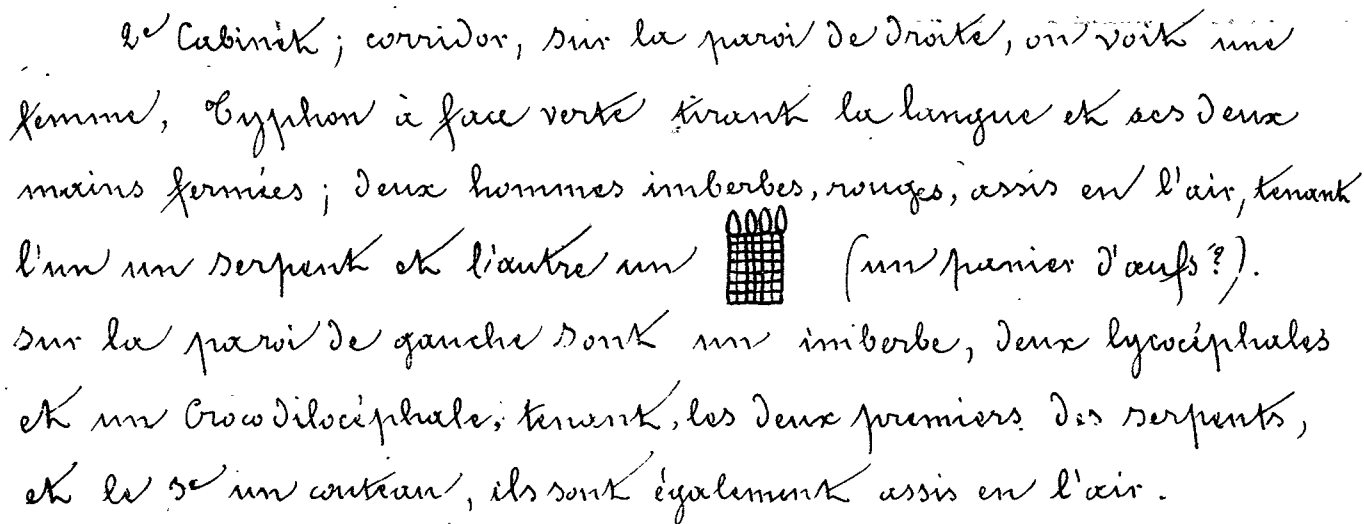 2e Cabinet ; corridor, sur la paroi de droite, on voit une
femme, Typhon à face verte tirant la langue et ses deux
mains fermées ; deux hommes imberbes, rouges, assis en l'air, tenant
l'un un serpent et l'autre un (un panier d'œufs ?).
sur la paroi de gauche sont un imberbe, deux lycocéphales
et un Crocodilocéphale, tenant, les deux premiers des serpents,
et le 3e un couteau, ils sont également assis en l'air.